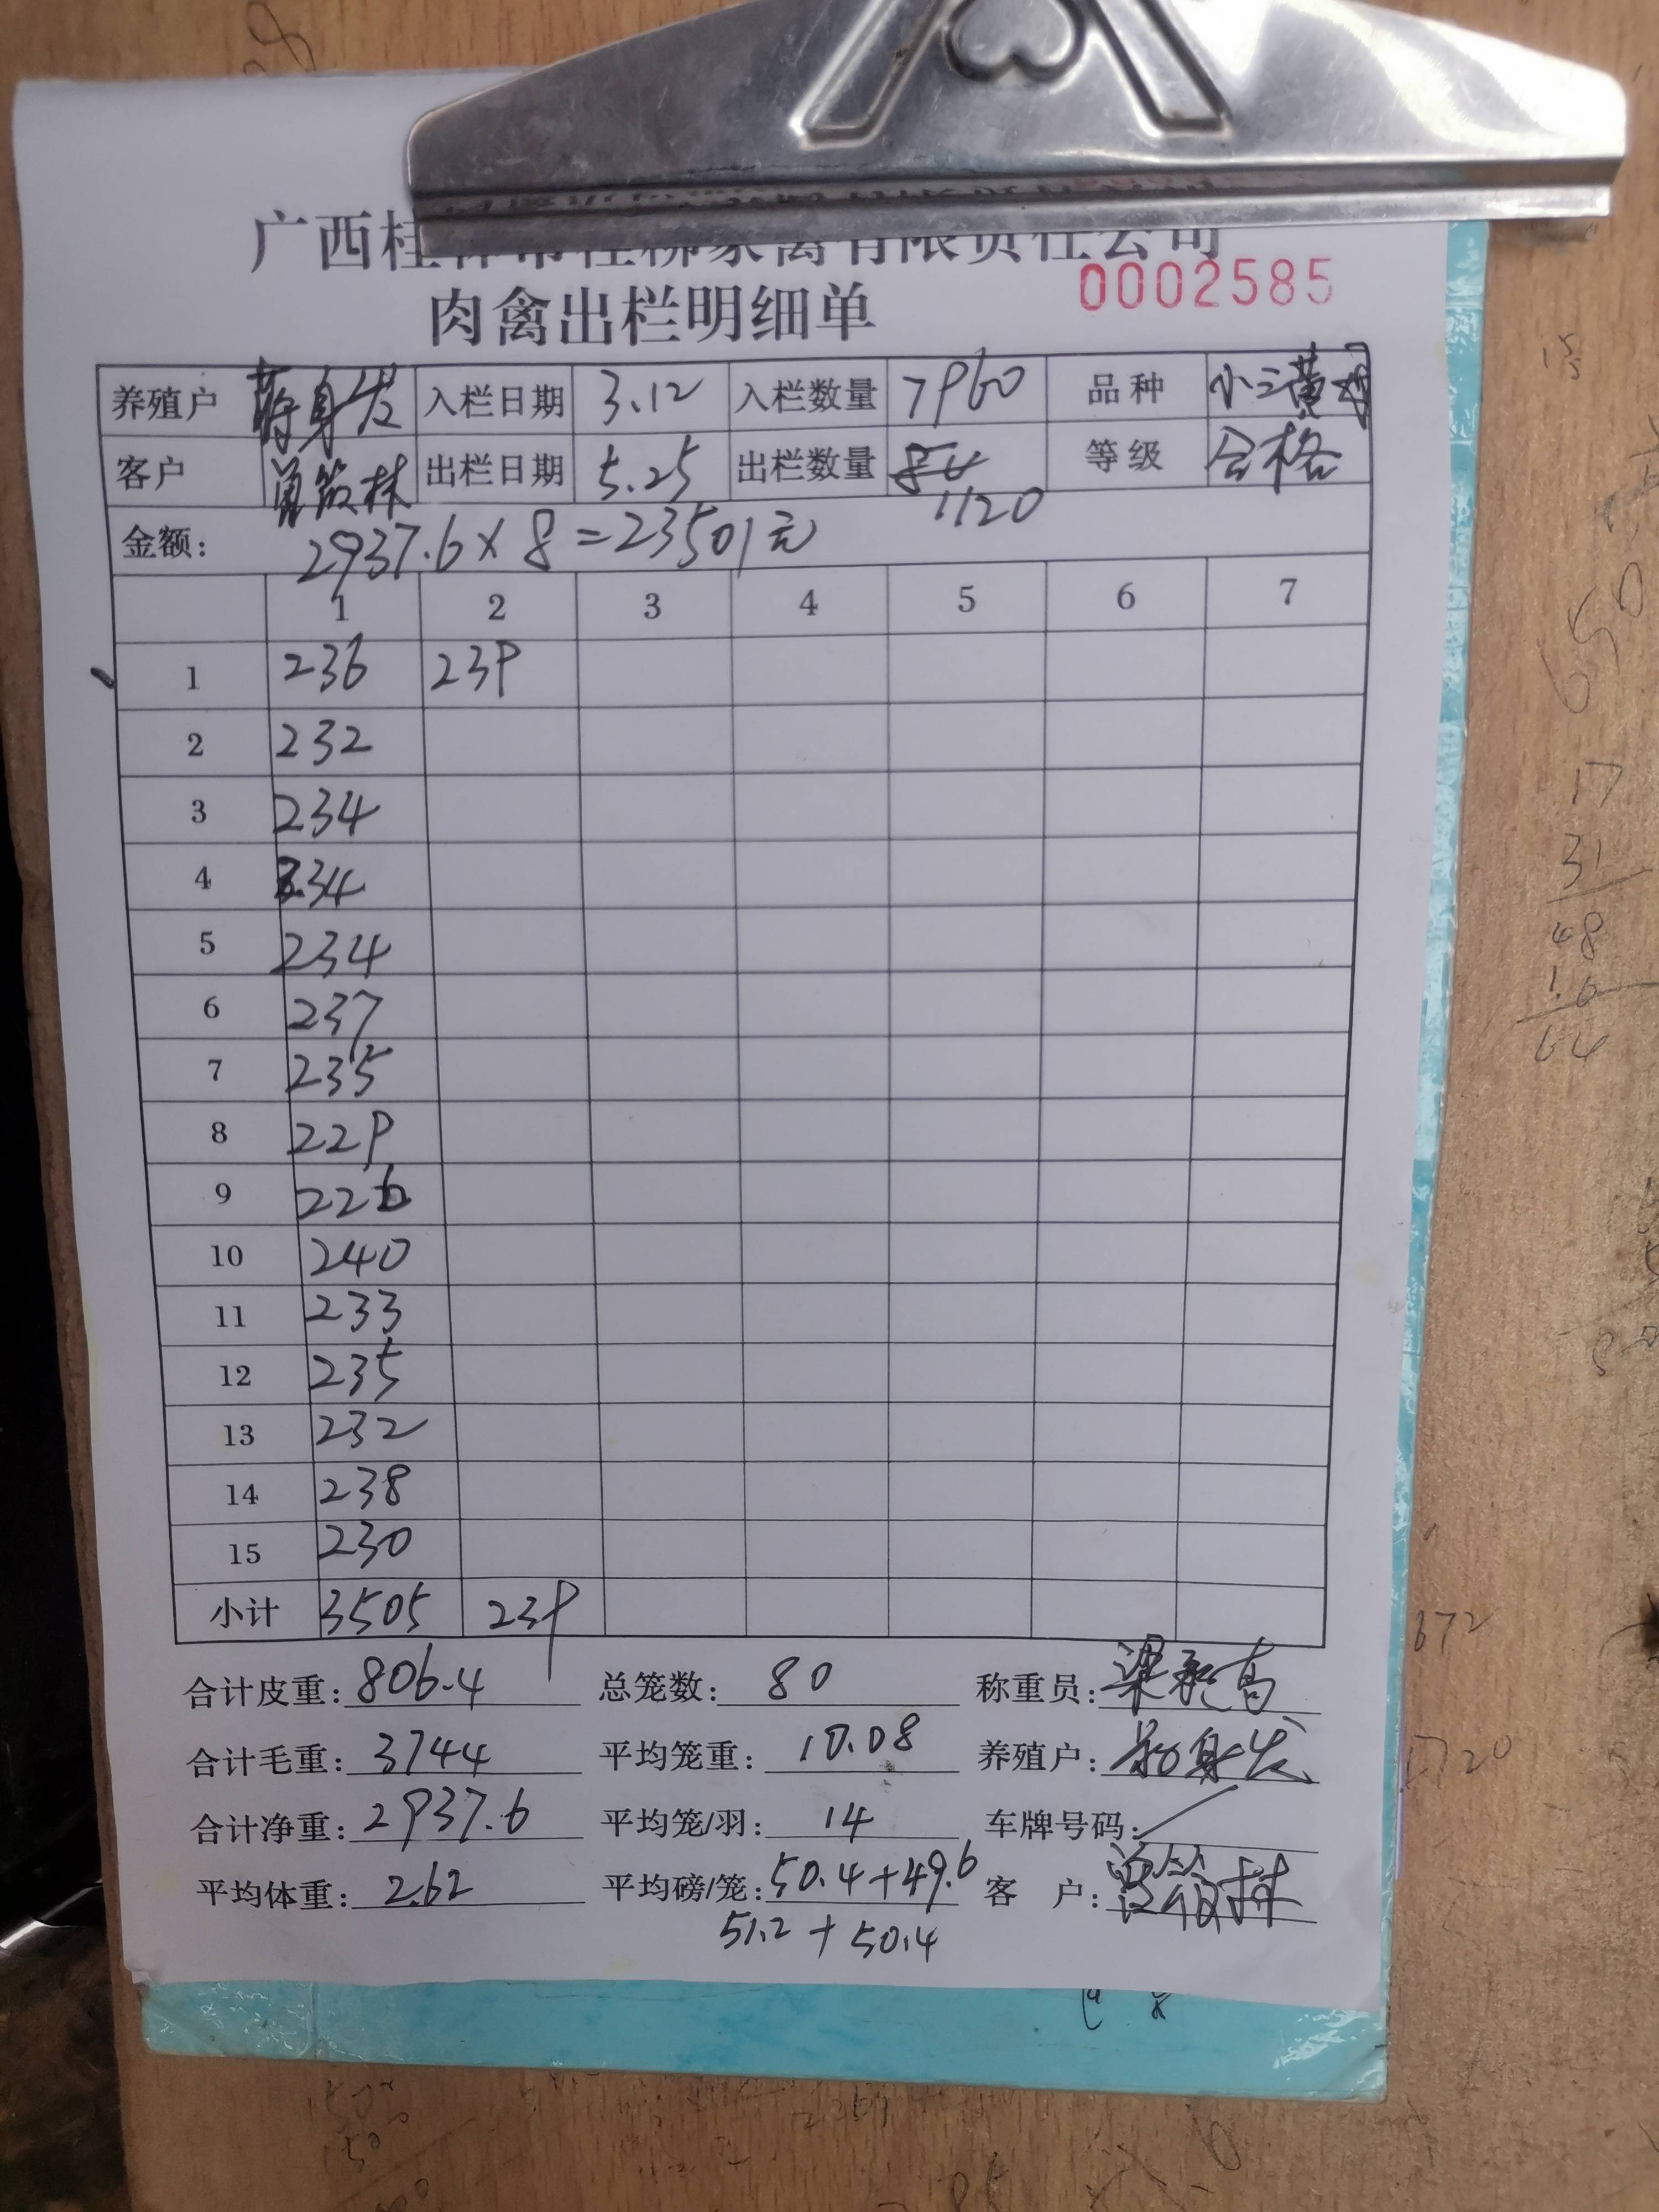 广西桂林市桂柳家禽有限责任公司
肉禽出栏明细单 0002585
养殖户 蒋身发 入栏日期 3.12 入栏数量 7960 品种 小三黄母
客户 曾筱林 出栏日期 5.25 出栏数量 1120 等级 合格
金额: 2937.6×8=23501元
1 2 3 4 5 6 7
1 236 239
2 232
3 234
4 234
5 234
6 237
7 235
8 229
9 226
10 240
11 233
12 235
13 232
14 238
15 230
小计 3505 239
合计皮重: 806.4 总笼数: 80 称重员:
合计毛重: 3744 平均笼重: 10.08 养殖户: 蒋身发
合计净重: 2937.6 平均笼/羽: 14 车牌号码:
平均体重: 2.62 平均磅/笼: 50.4+49.6 客 户: 曾筱林
51.2+50.4
17
31
48
16
64